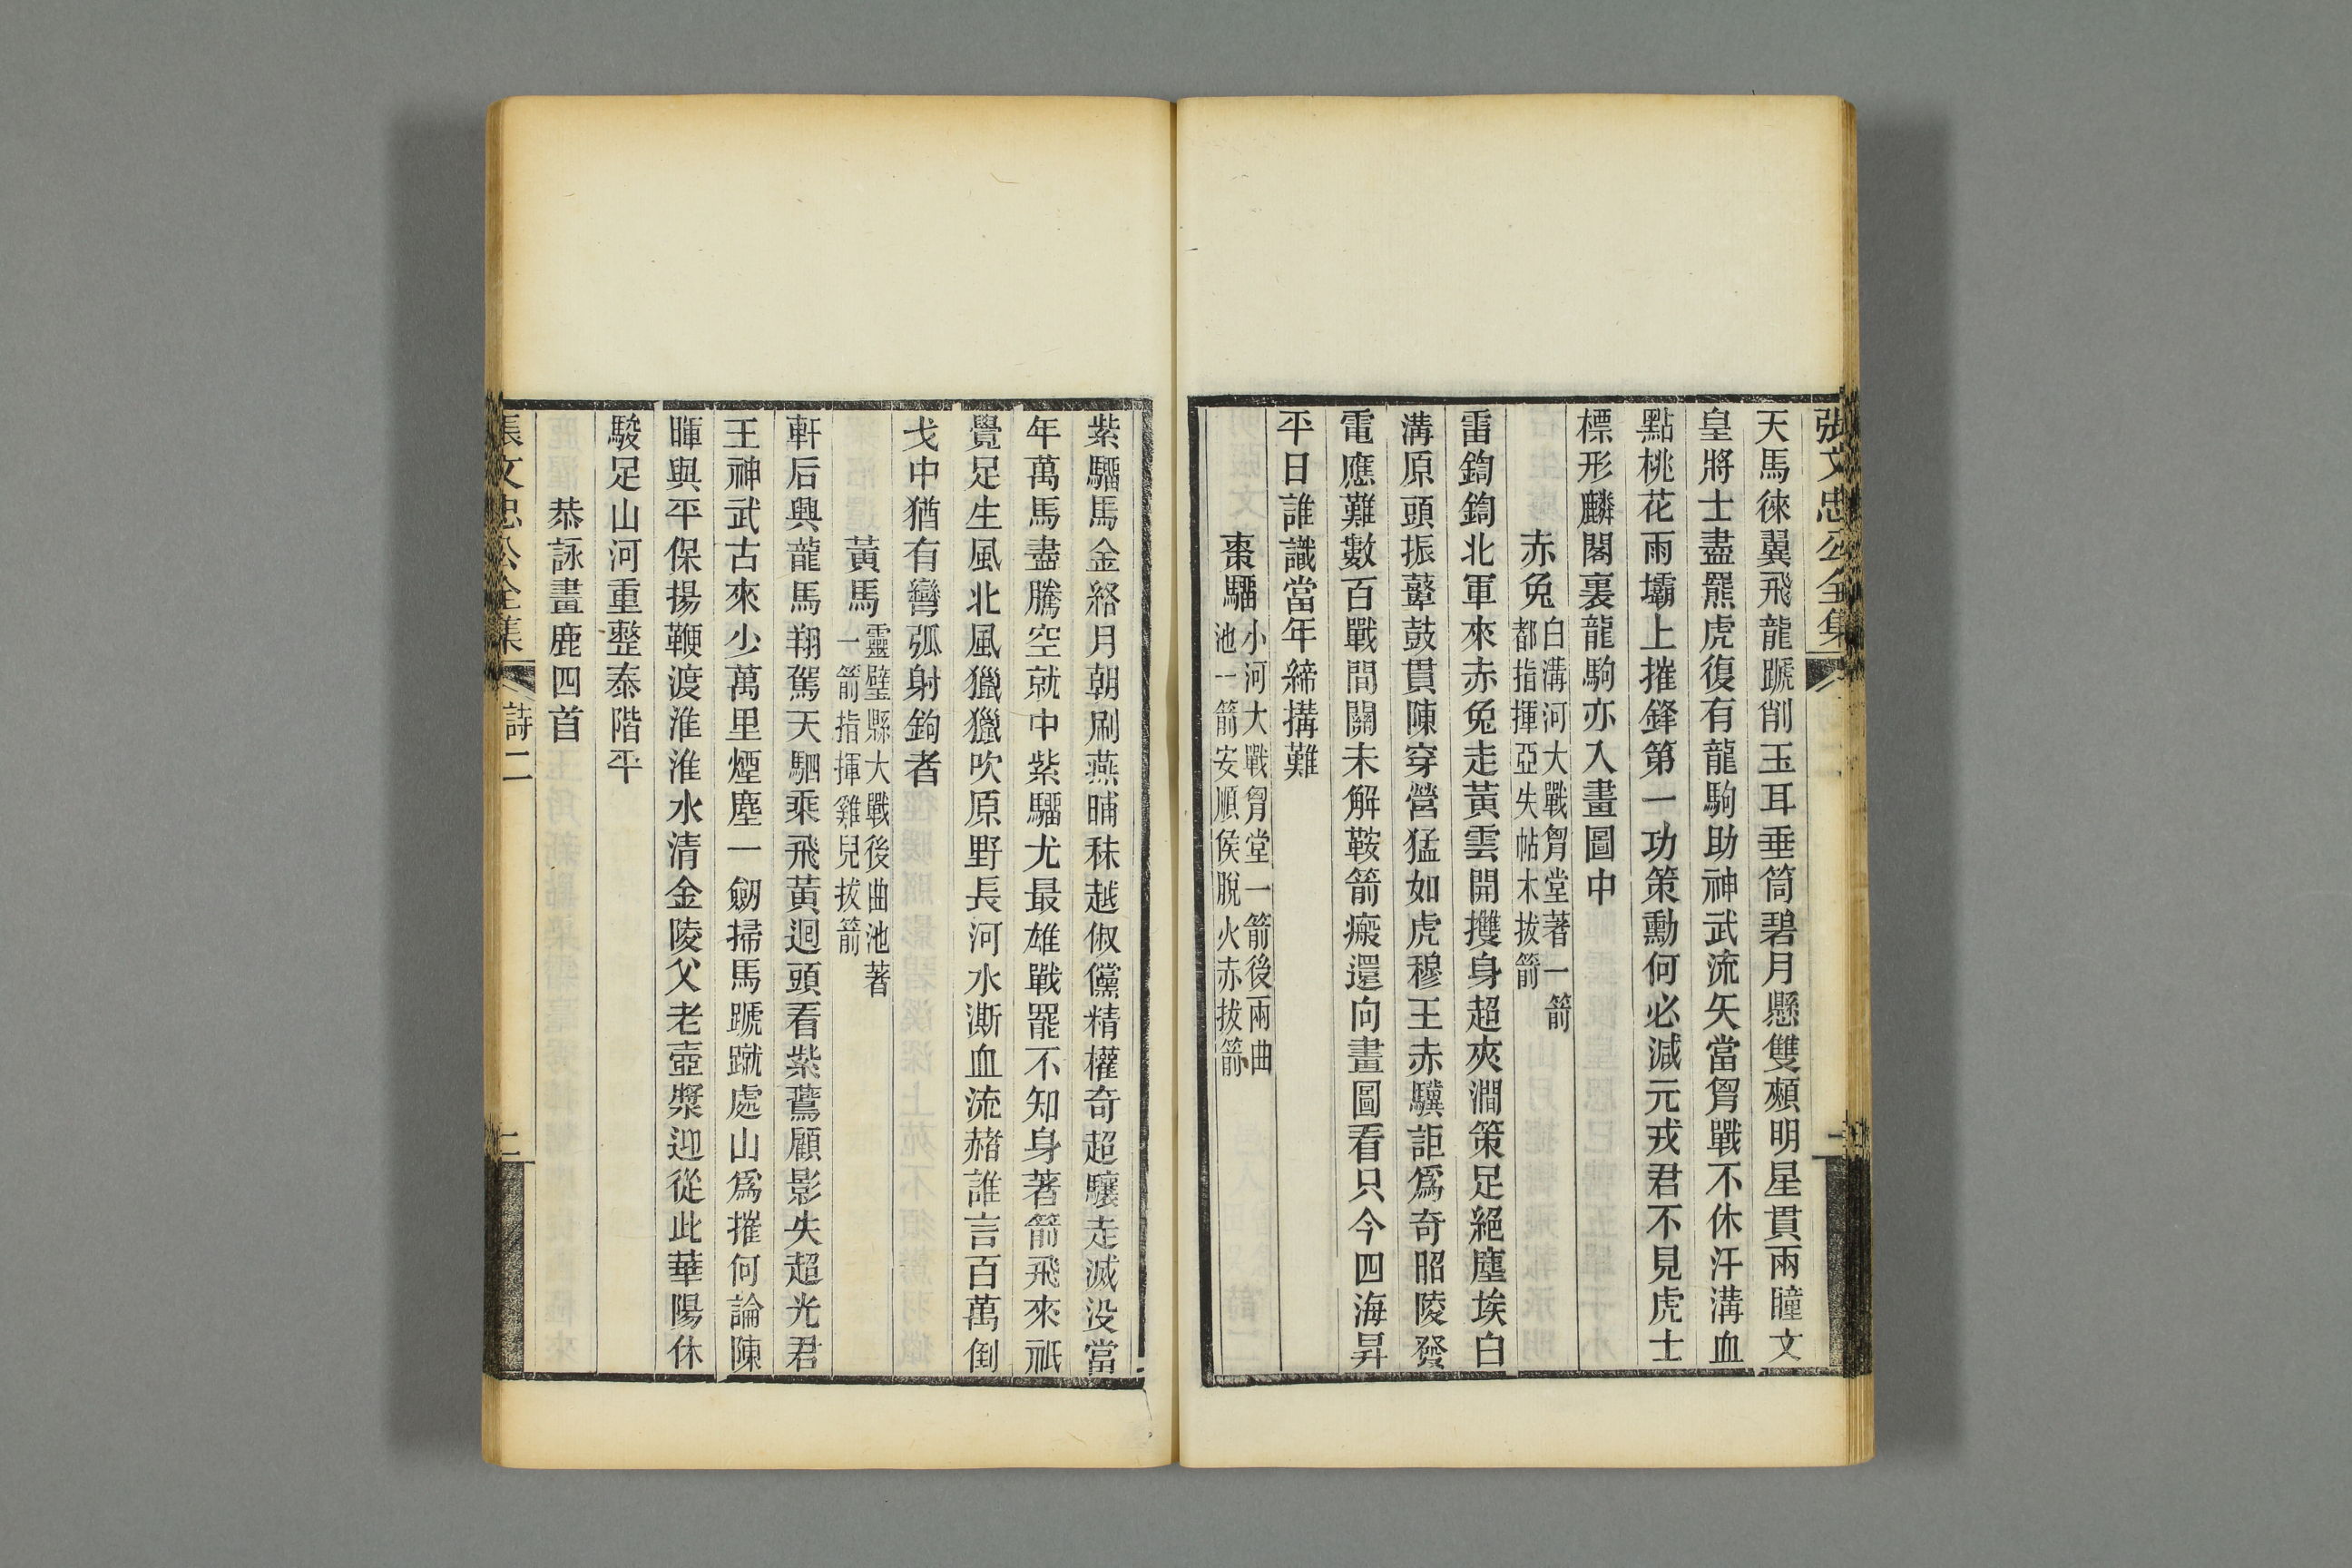 張文忠公全集
天馬徠翼飛龍蹏削玉耳垂筒碧月懸雙頰明星貫兩瞳文
皇將士盡羆虎復有龍駒助神武流矢當胷戰不休汗溝血
點桃花雨壩上摧鋒第一功策勳何必減元戎君不見虎士
標形麟閣裏龍駒亦入畫圖中
赤兔白溝河大戰胷堂著一箭
都指揮亞失帖木拔箭
雷鍧鍧北軍來赤兔走黃雲開攫身超夾澗策足絕塵埃白
溝原頭振鼙鼓貫陳穿營猛如虎穆王赤驥詎爲奇昭陵發
電應難數百戰間關未解鞍箭瘢還向畫圖看只今四海昇
平日誰識當年締搆難
棗騮小河大戰胷堂一箭後兩曲
池一箭安順侯脫火赤拔箭
紫騮馬金絡月朝刷燕晡秣越俶儻精權奇超驤走滅没當
年萬馬盡騰空就中紫騮尤最雄戰罷不知身著箭飛來祇
覺足生風北風獵獵吹原野長河水澌血流赭誰言百萬倒
戈中猶有彎弧射鉤者
黃馬靈璧縣大戰後曲池著
一箭指揮雞兒拔箭
軒后興龍馬翔駕天駟乘飛黃迴頭看紫鷰顧影失超光君
王神武古來少萬里煙塵一劒掃馬蹏蹴處山爲摧何論陳
暉與平保揚鞭渡淮淮水清金陵父老壺漿迎從此華陽休
駿足山河重整泰階平
恭詠畫鹿四首
張文忠公全集
詩二
二